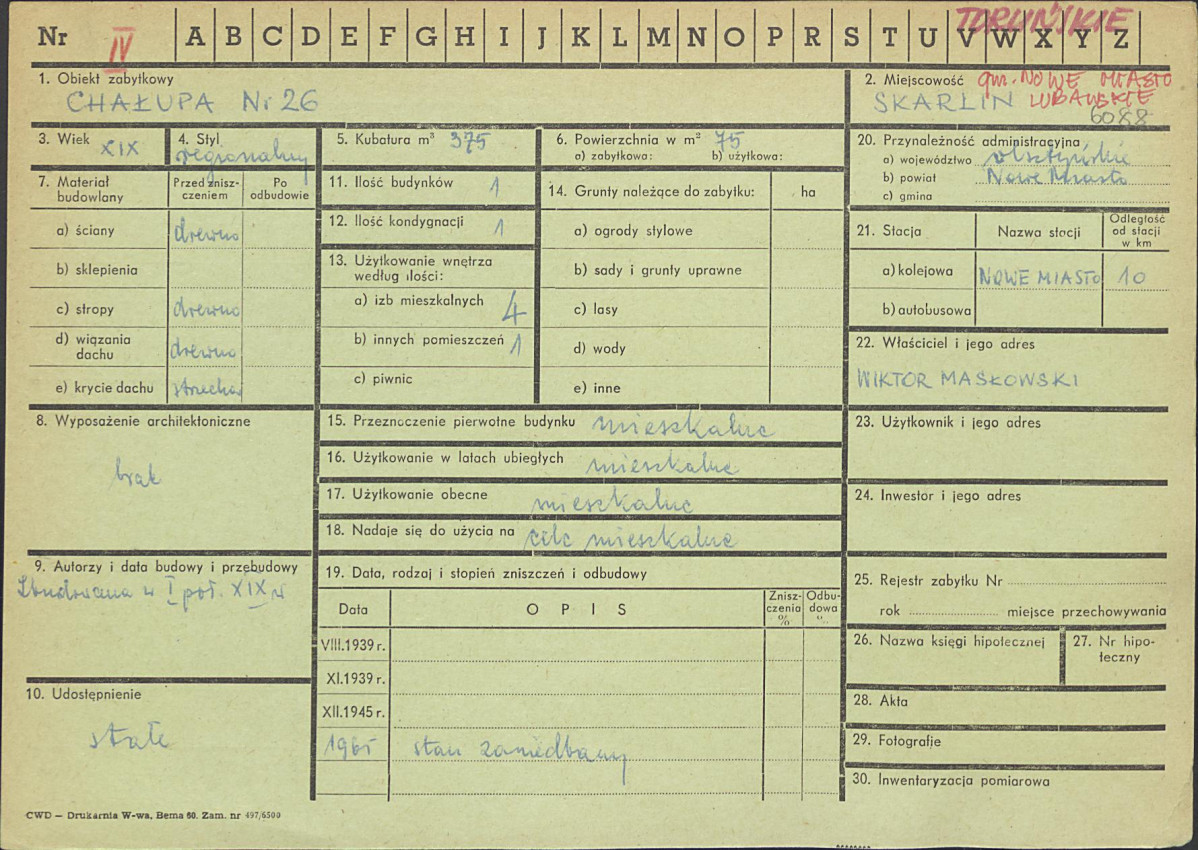 TORUŃSKIE
Nr IV A B C D E F G H I J K L M N O P R S T U V W X Y Z
1. Obiekt zabytkowy
CHAŁUPA Nr 26
2. Miejscowość gm. NOWE MIASTO
SKARLIN LUBAWSKIE
6088
3. Wiek XIX
4. Styl
regionalny
5. Kubatura m³ 375
6. Powierzchnia w m² 75
a) zabytkowa: b) użytkowa:
20. Przynależność administracyjna
a) województwo olsztyńskie
b) powiat Nowe Miasto
c) gmina
7. Materiał budowlany
Przed znisz-
czeniem
Po
odbudowie
a) ściany drewno
b) sklepienia
c) stropy drewno
d) wiązania
dachu drewno
e) krycie dachu strzecha
11. Ilość budynków 1
12. Ilość kondygnacji 1
13. Użytkowanie wnętrza
według ilości:
a) izb mieszkalnych 4
b) innych pomieszczeń 1
c) piwnic
14. Grunty należące do zabytku: ha
a) ogrody stylowe
b) sady i grunty uprawne
c) lasy
d) wody
e) inne
21. Stacja Nazwa stacji
Odległość
od stacji
w km
a) kolejowa NOWE MIASTO 10
b) autobusowa
22. Właściciel i jego adres
WIKTOR MASŁOWSKI
8. Wyposażenie architektoniczne
brak
15. Przeznaczenie pierwotne budynku mieszkalne
16. Użytkowanie w latach ubiegłych mieszkalne
17. Użytkowanie obecne mieszkalne
18. Nadaje się do użycia na cele mieszkalne
23. Użytkownik i jego adres
24. Inwestor i jego adres
9. Autorzy i data budowy i przebudowy
Zbudowana w I poł. XIX w
10. Udostępnienie
stałe
19. Data, rodzaj i stopień zniszczeń i odbudowy
Data OPIS
Znisz-
czenia
%
Odbu-
dowa
%
VIII.1939 r.
XI.1939 r.
XII.1945 r.
1965 stan zaniedbany
25. Rejestr zabytku Nr
rok miejsce przechowywania
26. Nazwa księgi hipotecznej
27. Nr hipo-
teczny
28. Akta
29. Fotografie
30. Inwentaryzacja pomiarowa
CWD — Drukarnia W-wa, Bema 60. Zam. nr 497/6500